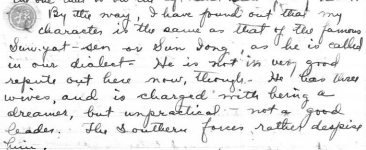 By the way, I have found out that my
character is the same as that of the famous
Sun-yat-sen or Sun Iong, as he is called
in our dialect. He is not in very good
repute out here now, though. He has three
wives, and is charged with being a
dreamer, but unpractical - not a good
leader. The Southern forces rather despise
him.